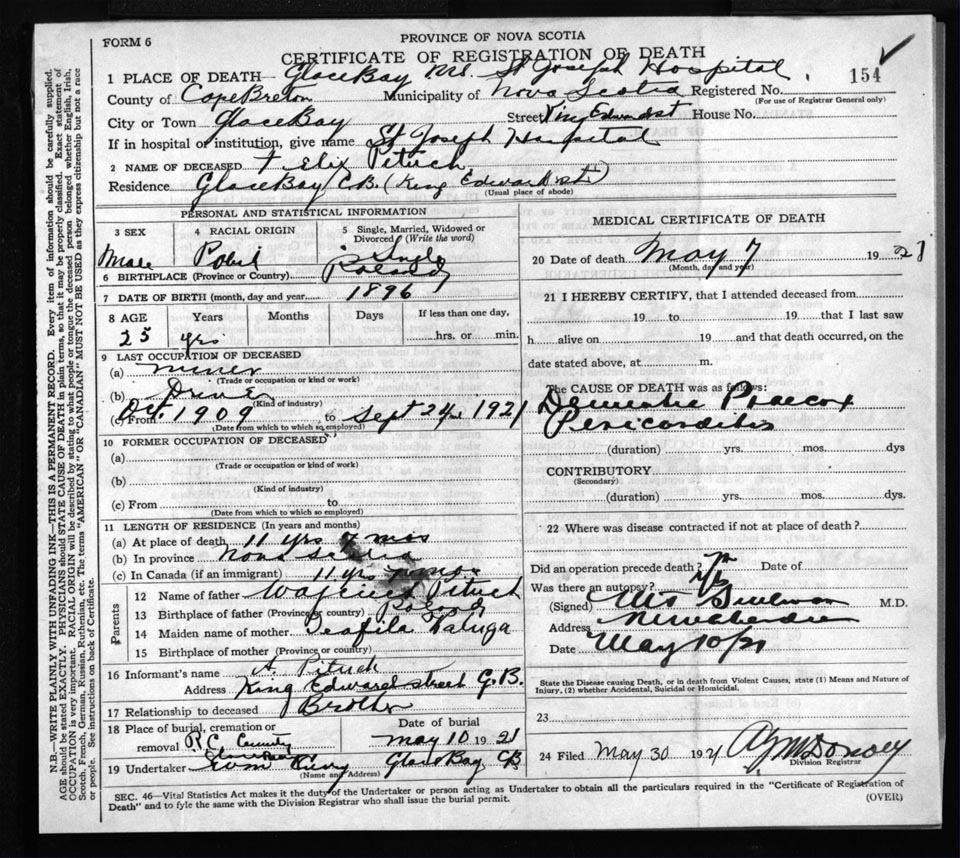 FORM 6
PROVINCE OF NOVA SCOTIA
CERTIFICATE OF REGISTRATION OF DEATH
154
1 PLACE OF DEATH— Glace Bay Rd. St Joseph Hospital
County of Cape Breton Municipality of Nova Scotia Registered No.
(For use of Registrar General only)
City or Town Glace Bay Street King Edward st House No.
If in hospital or institution, give name St Joseph Hospital
2 NAME OF DECEASED Felix Pituch
Residence Glace Bay C.B. (King Edward st)
(Usual place of abode)
PERSONAL AND STATISTICAL INFORMATION
3 SEX Male
4 RACIAL ORIGIN Polish
5 Single, Married, Widowed or Divorced (Write the word) Single
6 BIRTHPLACE (Province or Country) Poland
7 DATE OF BIRTH (month, day and year) 1896
8 AGE Years Months Days If less than one day,
25 yrs hrs. or min.
9 LAST OCCUPATION OF DECEASED
(a) miner
(Trade or occupation or kind or work)
(b) Driver
(Kind of industry)
(c) From Oct. 1909 to Sept 24nd 1921
(Date from which to which so employed)
10 FORMER OCCUPATION OF DECEASED
(a)
(Trade or occupation or kind of work)
(b)
(Kind of industry)
(c) From to
(Date from which to which so employed)
11 LENGTH OF RESIDENCE (In years and months)
(a) At place of death 11 yrs 7 mos
(b) In province Nova Scotia
(c) In Canada (if an immigrant) 11 yrs 7 mos
Parents
12 Name of father Pituch
13 Birthplace of father (Province or country) Poland
14 Maiden name of mother Teofila Kaluga
15 Birthplace of mother (Province or country)
16 Informant's name A. Pituch
Address King Edward street G.B.
17 Relationship to deceased Brother
18 Place of burial, cremation or removal R.C.
Date of burial May 10 1921
19 Undertaker Glace Bay CB
(Name and Address)
MEDICAL CERTIFICATE OF DEATH
20 Date of death May 7 19 21
(Month, day and year)
21 I HEREBY CERTIFY, that I attended deceased from
19 to 19 that I last saw
h alive on 19 and that death occurred, on the
date stated above, at m.
The CAUSE OF DEATH was as follows:
Dementia Praecox
Pericarditis
(duration) yrs. mos. dys
CONTRIBUTORY
(Secondary)
(duration) yrs. mos. dys.
22 Where was disease contracted if not at place of death?
Did an operation precede death? Date of
Was there an autopsy? No
(Signed) Sullivan M.D.
Address
Date May 10/21
State the Disease causing Death, or in death from Violent Causes, state (1) Means and Nature of Injury, (2) whether Accidental, Suicidal or Homicidal.
23
24 Filed May 30 1921
Division Registrar
SEC. 46—Vital Statistics Act makes it the duty of the Undertaker or person acting as Undertaker to obtain all the particulars required in the "Certificate of Registration of
Death" and to fyle the same with the Division Registrar who shall issue the burial permit.
(OVER)
N.B.—WRITE PLAINLY WITH UNFADING INK—THIS IS A PERMANENT RECORD. Every item of information should be carefully supplied.
AGE should be stated EXACTLY. PHYSICIANS should STATE CAUSE OF DEATH in plain terms, so that it may be properly classified. Exact statement of
OCCUPATION is very important. RACIAL ORIGIN will be described by stating to what people or tongue the deceased person belonged whether English, Irish,
Scotch, French, German, Russian, Ruthenian, etc. The terms "AMERICAN" OR "CANADIAN" MUST NOT BE USED as they express citizenship but not a race
or people. See instructions on back of Certificate.